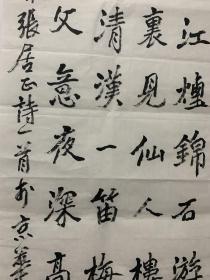 江煙錦石游
裏見仙人樓
清漢一笛梅
父意夜深高
張居正詩一首於京華